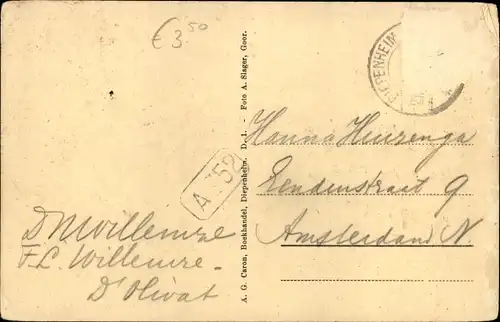 € 3.50
DIEPENHEIM
A 52
A. G. Caron, Boekhandel, Diepenheim. D. 1. - Foto A. Slager, Goor.
Hanna Huizenga
Eendenstraat 9
Amsterdam N
DMWillemze
F.L. Willemze -
D'Olivat